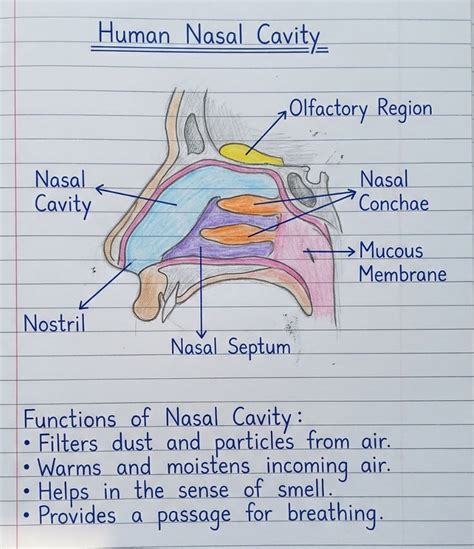 Human Nasal Cavity
Olfactory Region
Nasal
Cavity
Nasal
Conchae
Mucous
Membrane
Nostril
Nasal Septum
Functions of Nasal Cavity:
• Filters dust and particles from air.
• Warms and moistens incoming air.
• Helps in the sense of smell.
• Provides a passage for breathing.